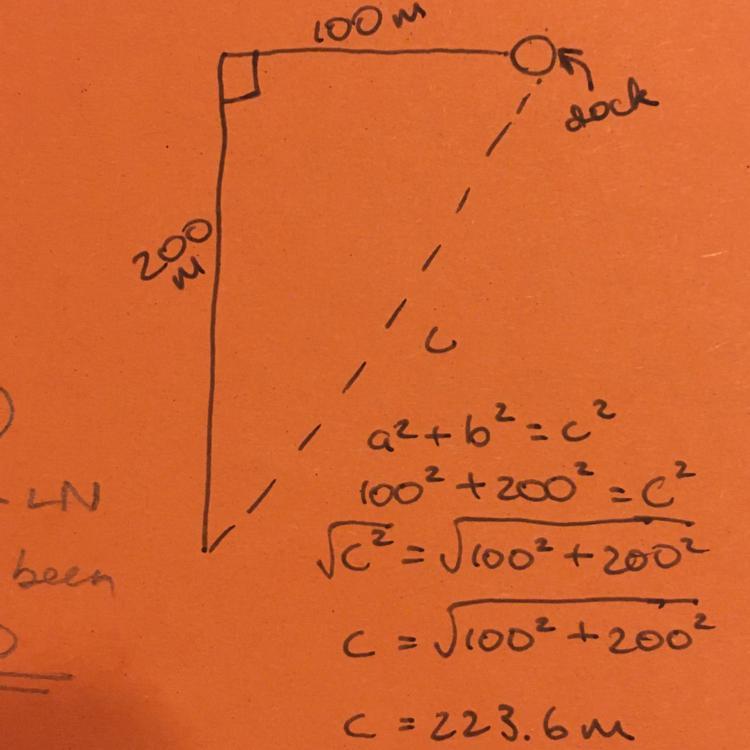 100 m
dock
200
m
c
a² + b² = c²
100² + 200² = c²
√c² = √100² + 200²
- LN
been
c = √100² + 200²
c = 223.6 m